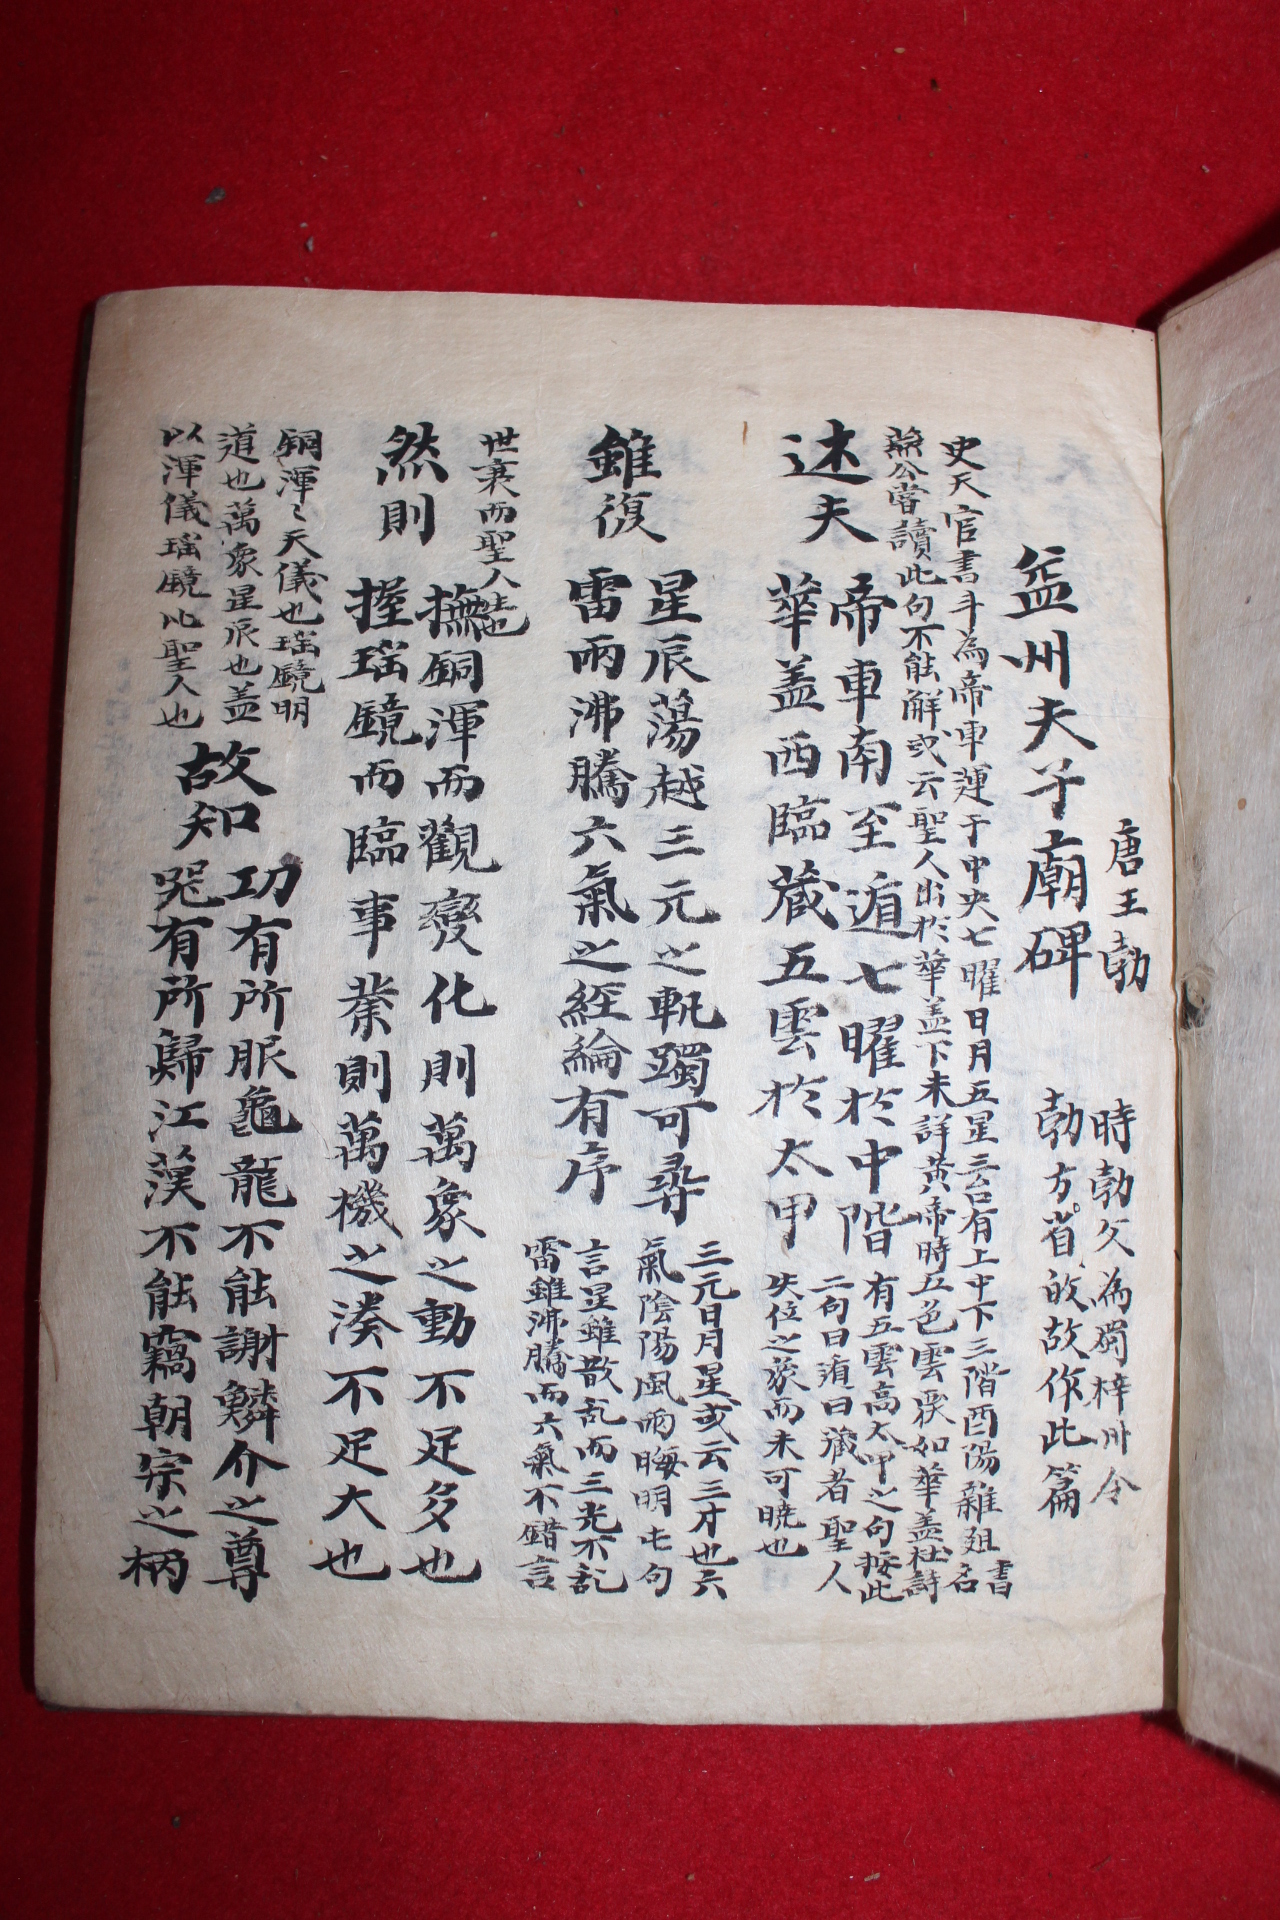 益州夫子廟碑
唐王勃
時勃久為蜀梓州令
勃方省故故作此篇
史天官書斗為帝車運于中央七曜日月五星三台有上中下三階酉陽雜俎書名
燕公嘗讀此句不能解或云聖人出於華盖下未詳黃帝時五色雲戾如華盖杜詩
述夫
帝車南至遁七曜於中階
華盖西臨藏五雲於太甲
有五雲高太甲之句按此
二句曰遁曰藏者聖人
失位之象而未可曉也
雖復
星辰蕩越三元之軌躅可尋
雷雨沸騰六氣之經綸有序
三元日月星或云三才也六
氣陰陽風雨晦明屯句
言星雖散乱而三光不乱
雷雖沸騰而六氣不錯言
世衰而聖人生也
然則
撫銅渾而觀變化則萬象之動不足多也
握瑶鏡而臨事業則萬機之湊不足大也
銅渾々天儀也瑶鏡明
道也萬象星辰也盖
以渾儀瑶鏡比聖人也
故知
功有所服龜龍不能謝鱗介之尊
器有所歸江漢不能竊朝宗之柄